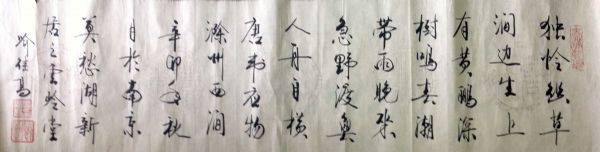 独怜幽草
涧边生上
有黄鹂深
树鸣春潮
带雨晚来
急野渡無
人舟自横
唐韦应物
滁州西涧
辛卯年秋
月於南京
莫愁湖新
居之雲吟堂